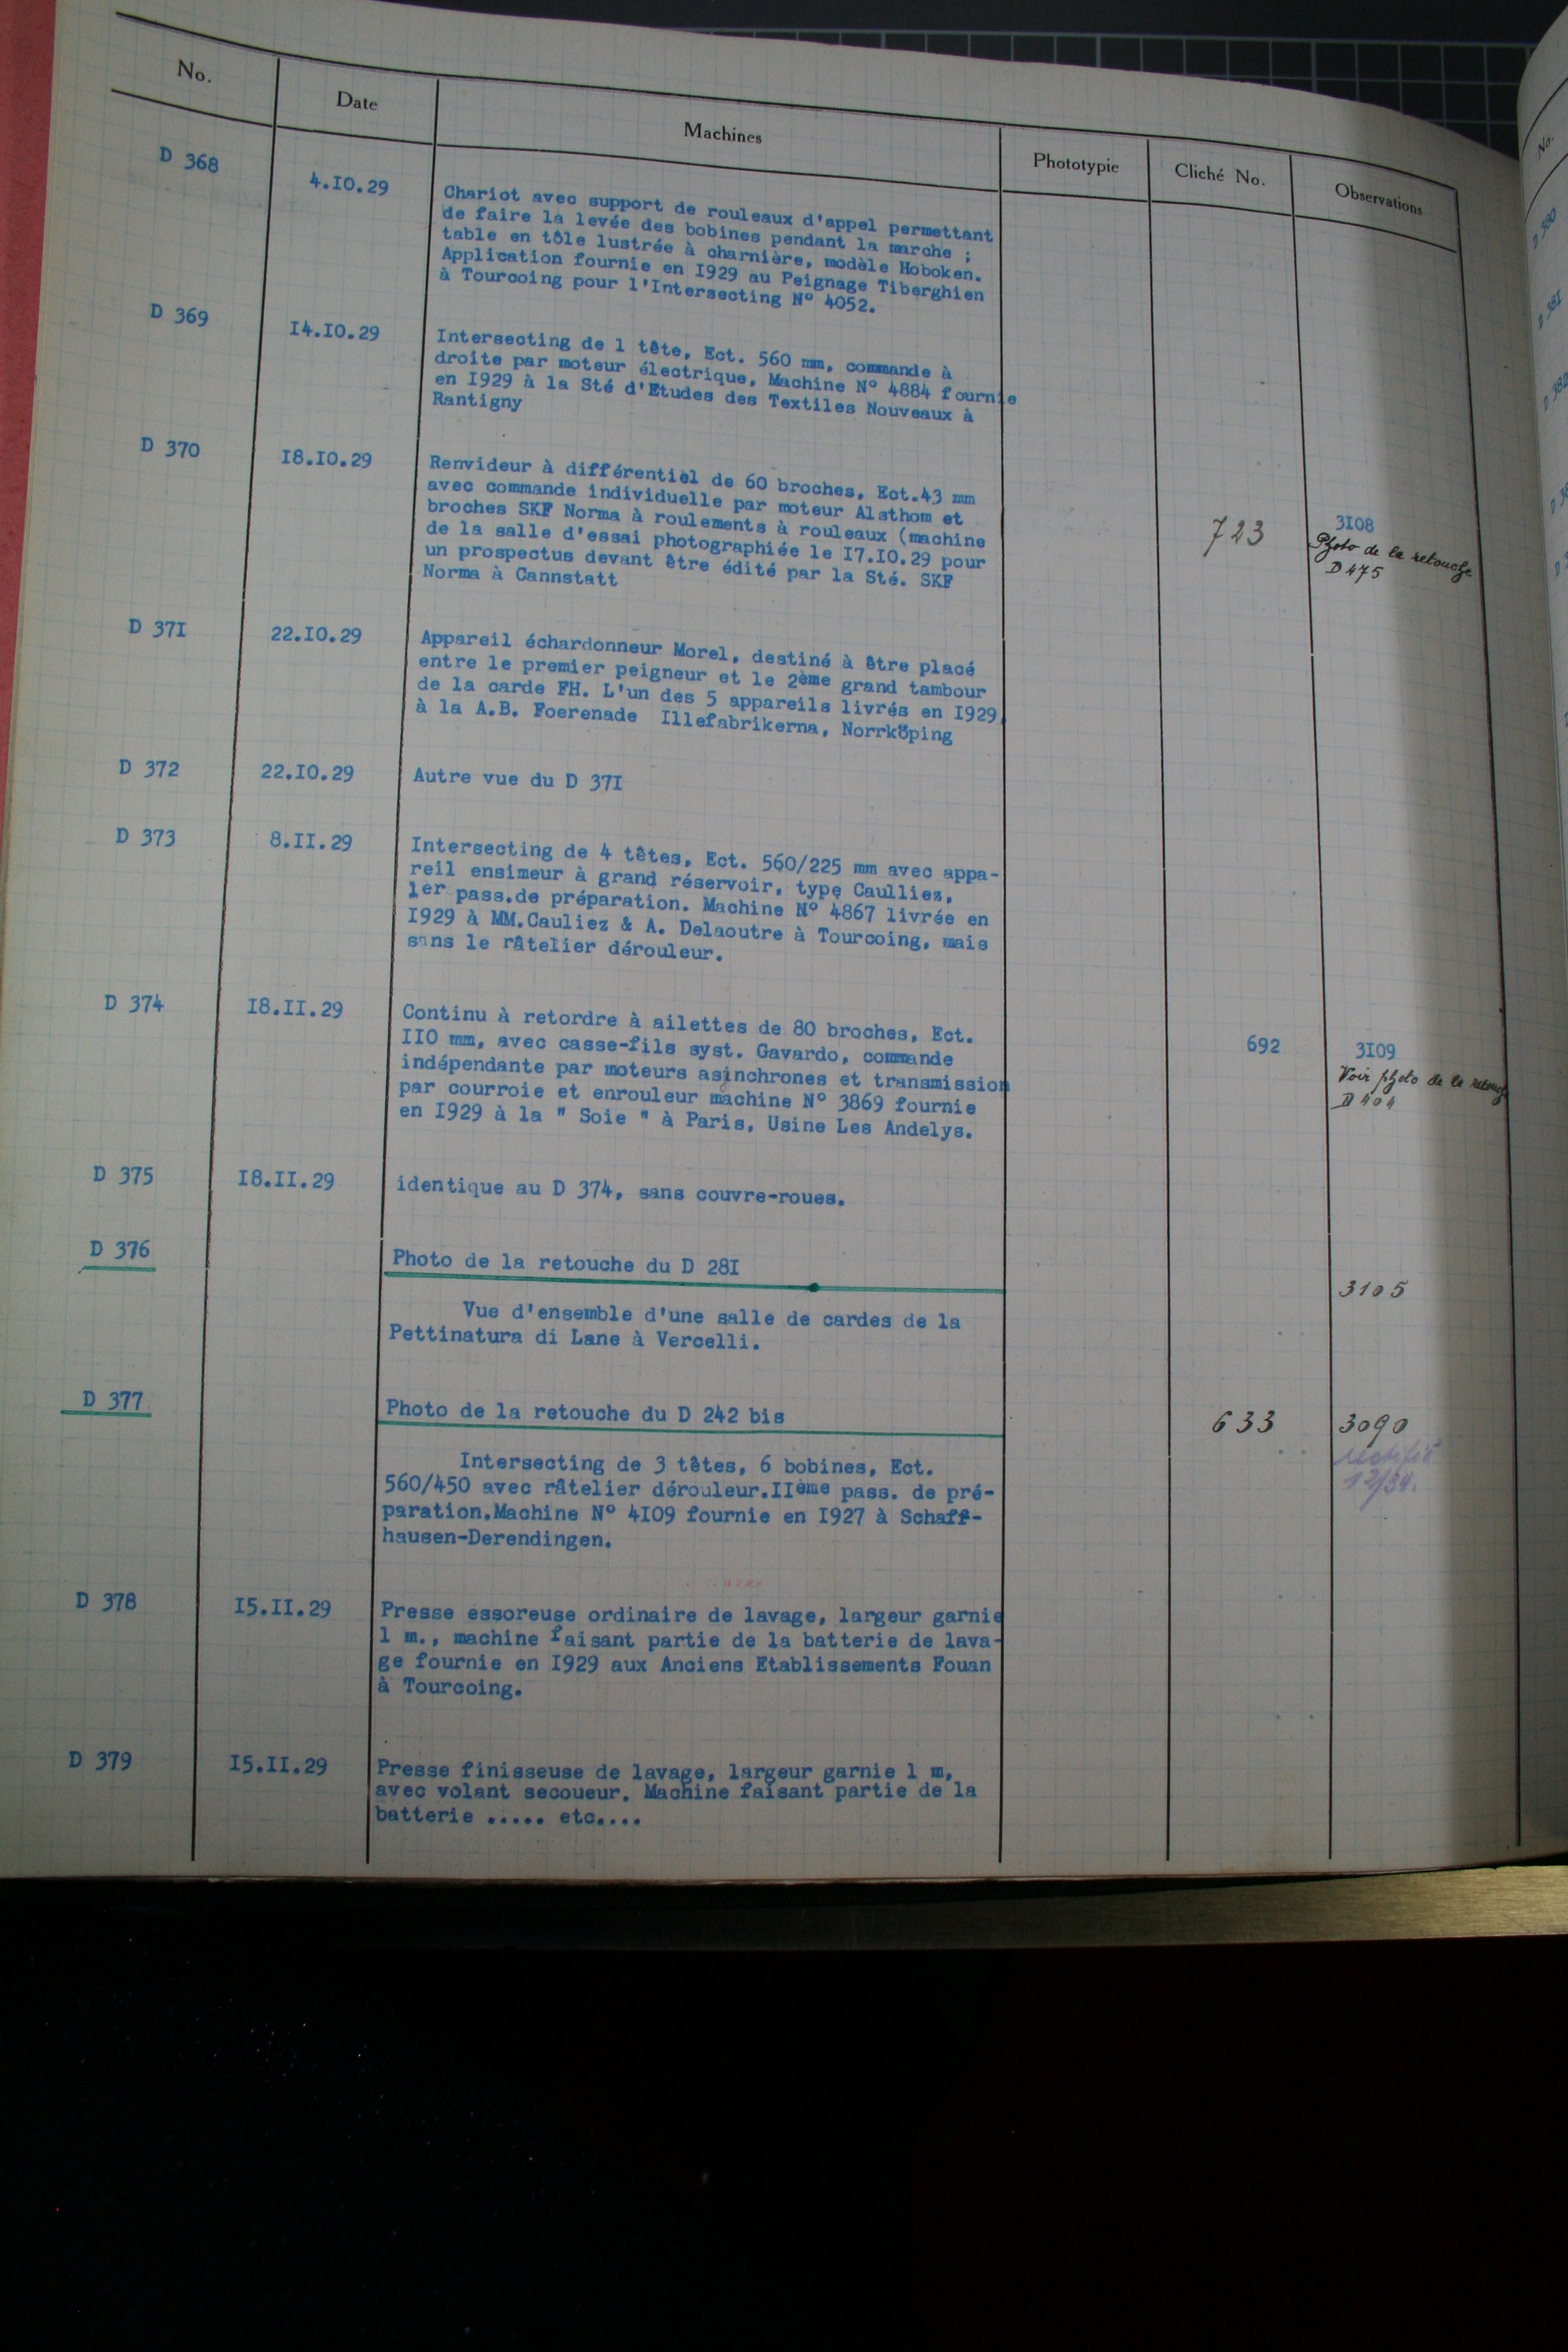 No. Date Machines Phototypie Cliché No. Observations
D 368 4.I0.29 Chariot avec support de rouleaux d'appel permettant
de faire la levée des bobines pendant la marche ;
table en tôle lustrée à charnière, modèle Hoboken.
Application fournie en I929 au Peignage Tiberghien
à Tourcoing pour l'Intersecting N° 4052.
D 369 I4.I0.29 Intersecting de 1 tête, Ect. 560 mm, commande à
droite par moteur électrique, Machine N° 4884 fournie
en I929 à la Sté d'Etudes des Textiles Nouveaux à
Rantigny
D 370 I8.I0.29 Renvideur à différentiel de 60 broches, Ect.43 mm
avec commande individuelle par moteur Alsthom et
broches SKF Norma à roulements à rouleaux (machine
de la salle d'essai photographiée le I7.I0.29 pour
un prospectus devant être édité par la Sté. SKF
Norma à Cannstatt
723 3I08
Photo de la retouche
D 475
D 37I 22.I0.29 Appareil échardonneur Morel, destiné à être placé
entre le premier peigneur et le 2ème grand tambour
de la carde FH. L'un des 5 appareils livrés en I929
à la A.B. Foerenade Illefabrikerna, Norrköping
D 372 22.I0.29 Autre vue du D 37I
D 373 8.II.29 Intersecting de 4 têtes, Ect. 560/225 mm avec appa-
reil ensimeur à grand réservoir, type Caulliez,
1er pass.de préparation. Machine N° 4867 livrée en
I929 à MM.Cauliez & A. Delaoutre à Tourcoing, mais
sans le râtelier dérouleur.
D 374 I8.II.29 Continu à retordre à ailettes de 80 broches, Ect.
II0 mm, avec casse-fils syst. Gavardo, commande
indépendante par moteurs asinchrones et transmission
par courroie et enrouleur machine N° 3869 fournie
en I929 à la " Soie " à Paris, Usine Les Andelys.
692 3I09
Voir photo de la retouche
D 404
D 375 I8.II.29 identique au D 374, sans couvre-roues.
D 376 Photo de la retouche du D 28I
3105
Vue d'ensemble d'une salle de cardes de la
Pettinatura di Lane à Vercelli.
D 377 Photo de la retouche du D 242 bis 633 3090
rectifié
12/34.
Intersecting de 3 têtes, 6 bobines, Ect.
560/450 avec râtelier dérouleur.IIème pass. de pré-
paration.Machine N° 4I09 fournie en I927 à Schaff-
hausen-Derendingen.
D 378 I5.II.29 Presse essoreuse ordinaire de lavage, largeur garnie
1 m., machine faisant partie de la batterie de lava-
ge fournie en I929 aux Anciens Etablissements Fouan
à Tourcoing.
D 379 I5.II.29 Presse finisseuse de lavage, largeur garnie 1 m,
avec volant secoueur. Machine faisant partie de la
batterie ..... etc....
No.
D 380
D 38I
D 382